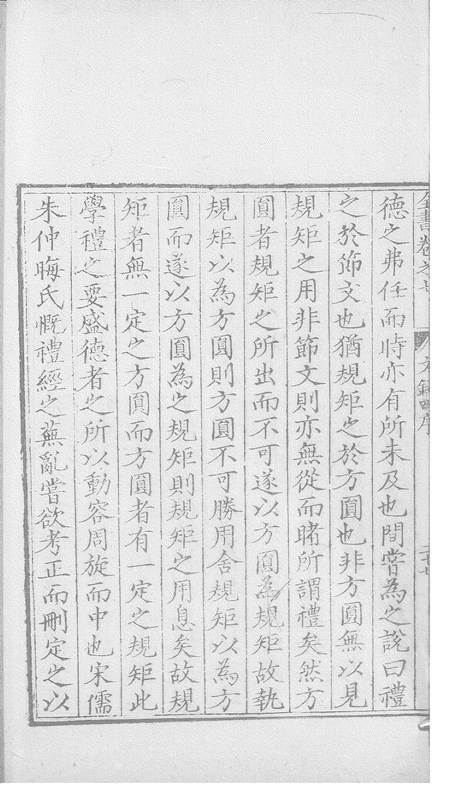 全書卷之七 文録四序 二十七
德之弗任而時亦有所未及也間嘗為之說曰禮
之於節文也猶規矩之於方圓也非方圓無以見
規矩之用非節文則亦無從而睹所謂禮矣然方
圓者規矩之所出而不可遂以方圓為規矩故執
規矩以為方圓則方圓不可勝用舍規矩以為方
圓而遂以方圓為之規矩則規矩之用息矣故規
矩者無一定之方圓而方圓者有一定之規矩此
學禮之要盛德者之所以動容周旋而中也宋儒
朱仲晦氏慨禮經之蕪亂嘗欲考正而刪定之以